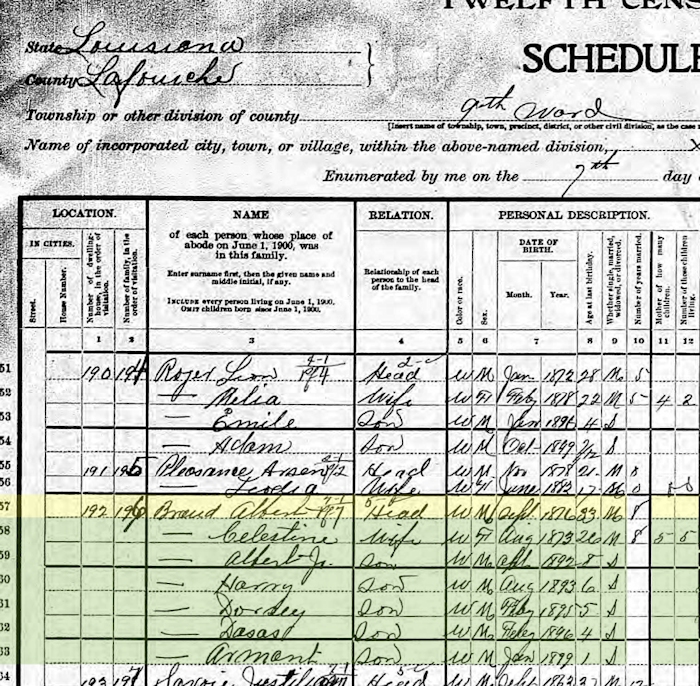 TWELFTH CENS
State Louisiana
County Lafourche
SCHEDULE
Township or other division of county 9th Ward
[Insert name of township, town, precinct, district, or other civil division, as the case
Name of incorporated city, town, or village, within the above-named division, X
Enumerated by me on the 7th day
LOCATION. NAME RELATION. PERSONAL DESCRIPTION.
IN CITIES.
Street.
House Number.
Number of dwelling-house, in the order of visitation.
Number of family, in the order of visitation.
of each person whose place of abode on June 1, 1900, was in this family.
Enter surname first, then the given name and middle initial, if any.
INCLUDE every person living on June 1, 1900.
OMIT children born since June 1, 1900.
Relationship of each person to the head of the family.
Color or race.
Sex.
DATE OF BIRTH.
Month. Year.
Age at last birthday.
Whether single, married, widowed, or divorced.
Number of years married.
Mother of how many children.
Number of these children living.
1 2 3 4 5 6 7 8 9 10 11 12
51 190 194 Roger Leon Head W M Jan 1872 28 M 5
52 — Melia Wife W F Feb 1878 22 M 5 4 2
53 — Emile Son W M Jan 1896 4 S
54 — Adam Son W M Oct 1899 S
55 191 195 Pleasance Arsen Head W M Nov 1878 21 M
56 — Wife W F June 1882 17 M 0
57 192 196 Braud Albert Head W M Sept 1876 23 M 8
58 — Celestine Wife W F Aug 1873 26 M 8 5 5
59 — Albert Jr. Son W M 1892 8 S
60 — Harry Son W M Aug 1893 6 S
61 — Dorsey Son W M 1895 5 S
62 — Dasas Son W M Feb 1896 4 S
63 — Armont Son W M Jan 1899 1 S
64 193 197 Savoie Head W M